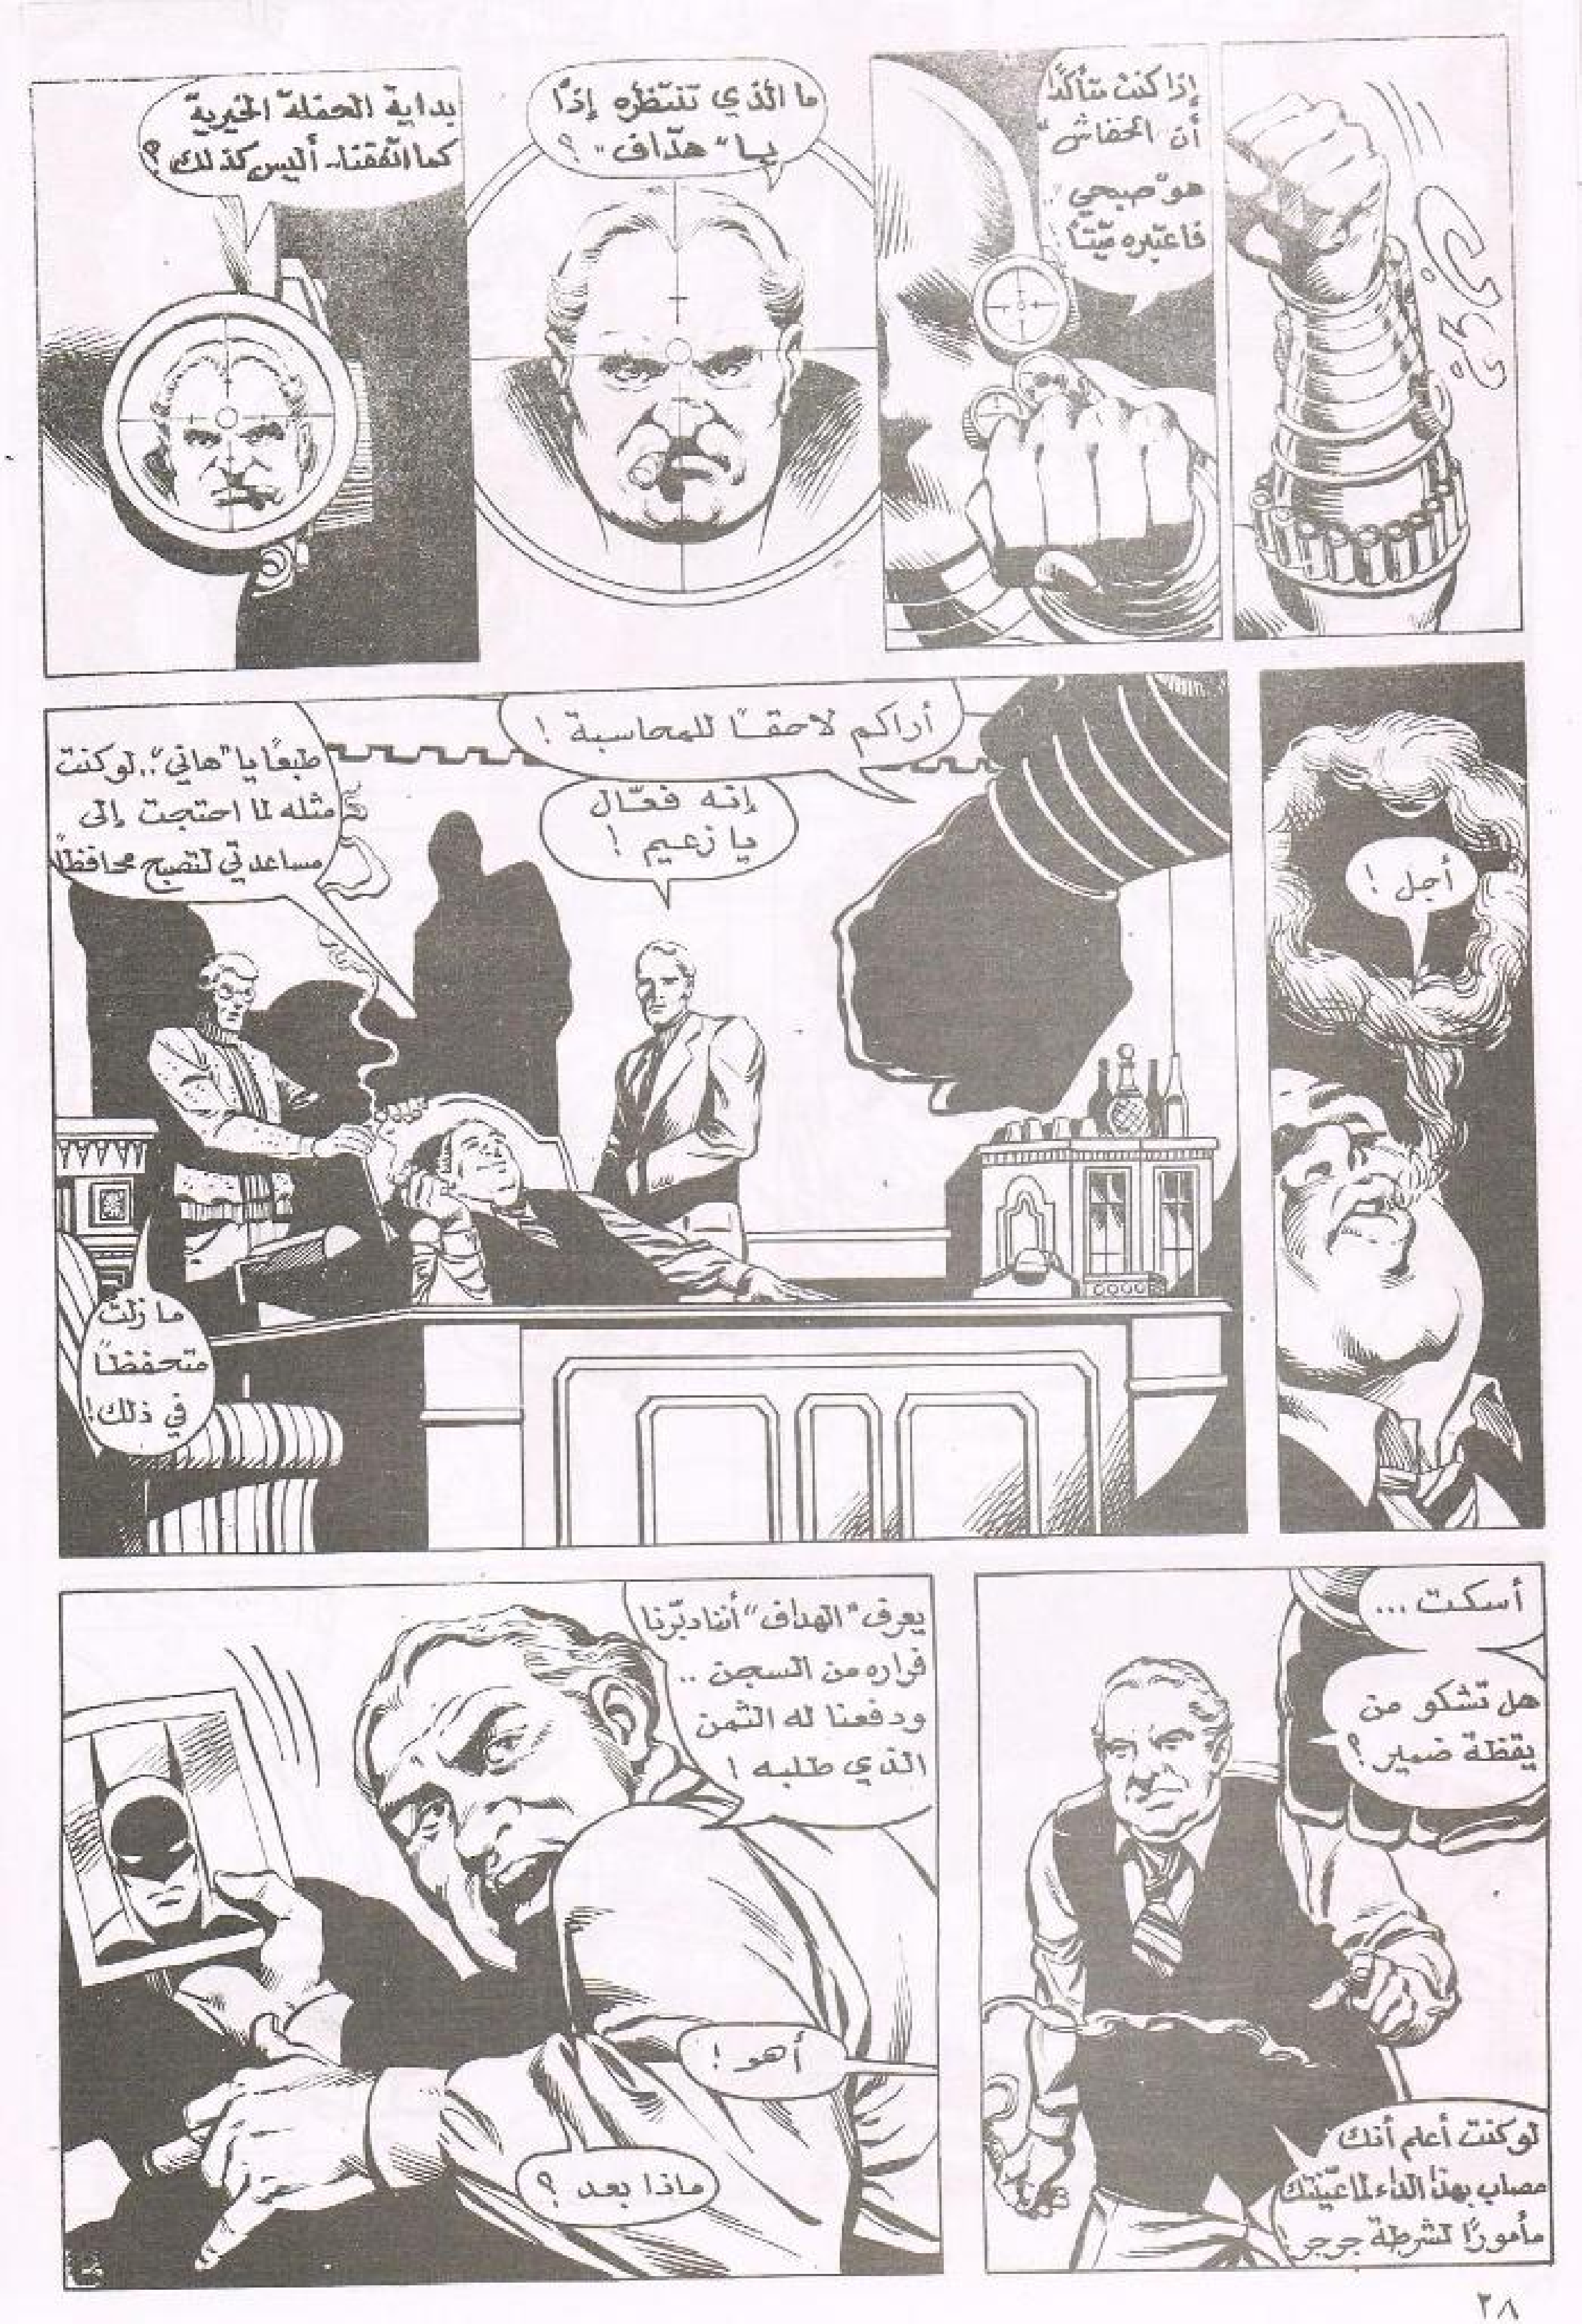 إذا كنت متأكدًا
أن "الخفاش"
هو "صبحي"..
فاعتبره ميّتًا!
ما الذي تنتظره إذًا
يا "هدّاف" ؟
بداية الحفلة الخيرية
كما اتفقنا.. أليس كذلك ؟
أجل !
أراكم لاحقـًا للمحاسبة !
إنه فعّال
يا زعيم !
طبعًا يا "هاني".. لو كنت
مثله لما احتجت إلى
مساعدتي لتصبح محافظًا
ما زلت
متحفظًا
في ذلك !
أسكت ...
هل تشكو من
يقظة ضمير ؟
لو كنت أعلم أنك
مصاب بهذا الداء لما عيّنتك
مأمورًا لشرطة جرجر !
يعرف "الهداف" أننا دبّرنا
فراره من السجن ..
ودفعنا له الثمن
الذي طلبه !
أهو !
ماذا بعد ؟
٢٨